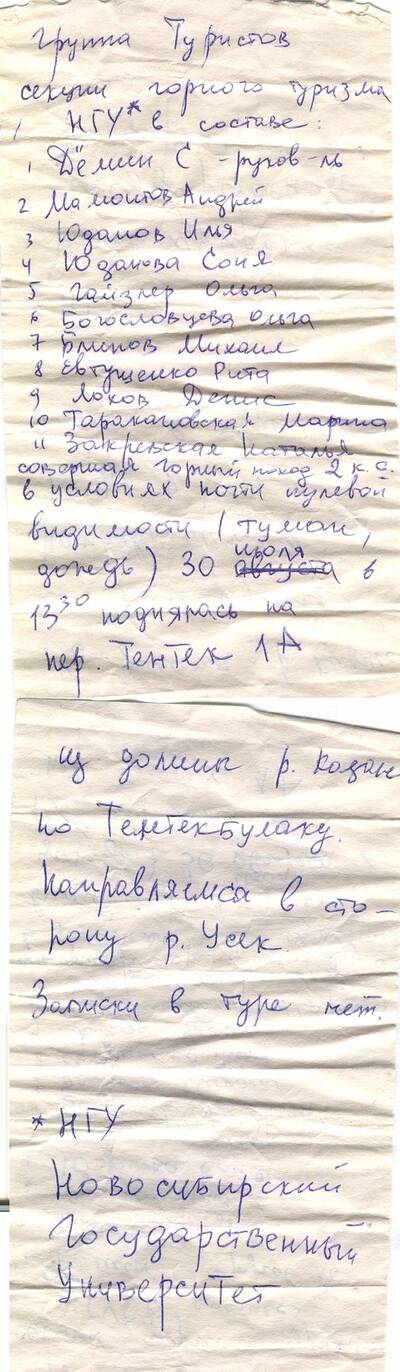 Группа Туристов
секции горного туризма
НГУ* в составе:
1 Дёмин С - руков-ль
2 Мамонтов Андрей
3 Юданов Илья
4 Юданова Соня
5 Гайзлер Ольга
6 Богословцева Ольга
7 Блинов Михаил
8 Евтушенко Рита
9 Лохов Денис
10 Таракановская Марина
11 Закревская Наталья
совершая горный поход 2 к.с.
в условиях почти нулевой
видимости (туман,
дождь) 30 августа июля в
13 30 поднялась на
пер. Тентек 1А
из долины р. Казан
по Тентекбулаку.
Направляемся в сто-
рону р. Усек
Записки в туре нет.
* НГУ
Новосибирский
Государственный
Университет